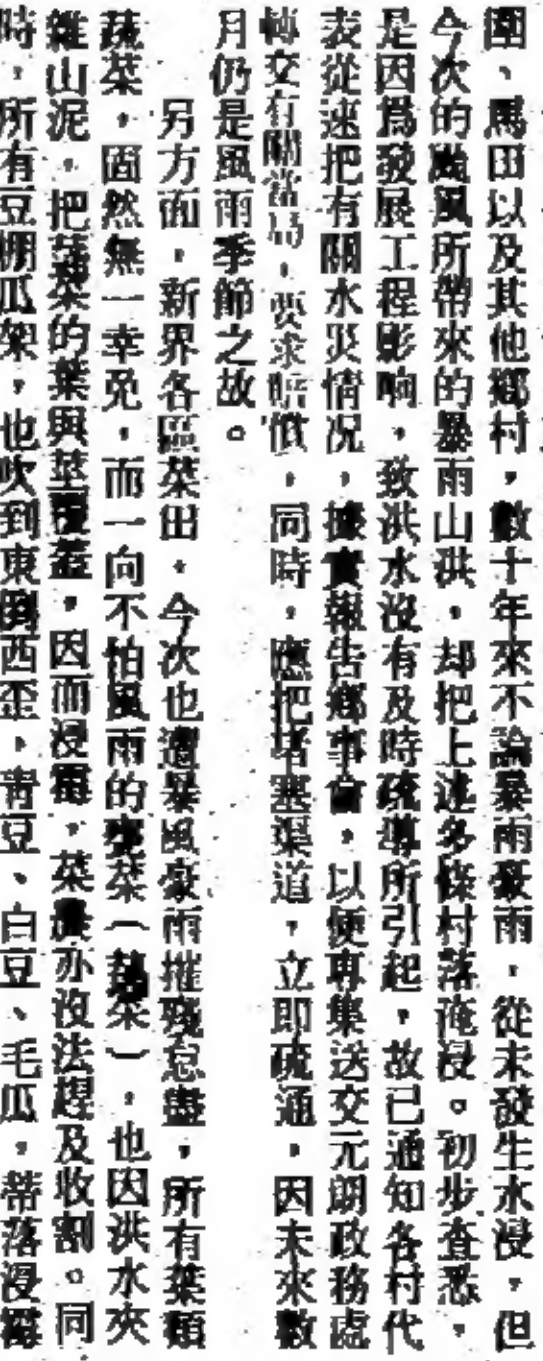 圍、馬田以及其他鄉村，數十年來不論暴雨豪雨，從未發生水浸，但
今次的颱風所帶來的暴雨山洪，却把上述多條村落淹浸。初步查悉，
是因爲發展工程影响，致洪水沒有及時疏導所引起，故已通知各村代
表從速把有關水災情况，據實報告鄉事會，以便專集送交元朗政務處
轉交有關當局，要求賠償，同時，應把堵塞渠道，立即疏通，因未來數
月仍是風雨季節之故。
另方面，新界各區菜田，今次也遭暴風豪雨摧殘怠盡，所有葉類
蔬菜，固然無一幸免，而一向不怕風雨的蕹菜（蕹菜），也因洪水夾
雜山泥，把蕹菜的葉與莖覆蓋，因而浸霉，菜農亦沒法趕及收割。同
時，所有豆棚瓜架，也吹到東倒西歪，青豆、白豆、毛瓜，蒂落浸爛